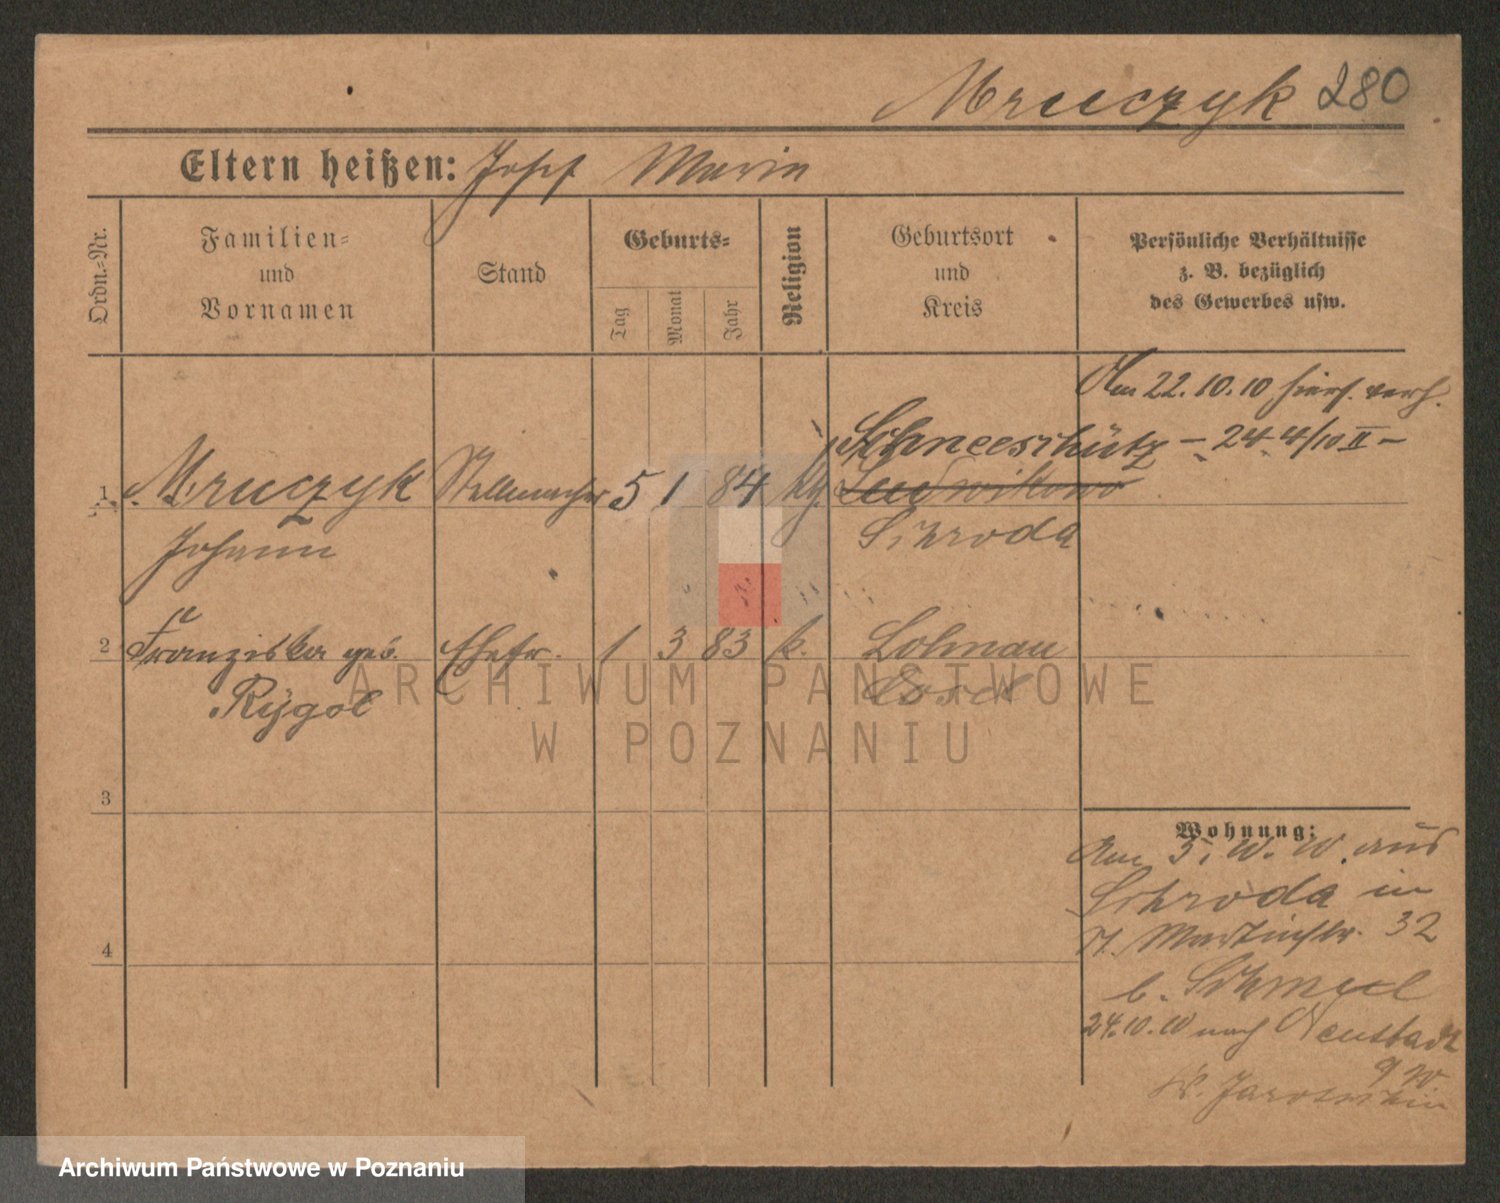 Mruczyk 280
Eltern heißen: Josef Maria
Ordn.-Nr.
Familien-
und
Vornamen
Stand
Geburts-
Tag
Monat
Jahr
Religion
Geburtsort
und
Kreis
Persönliche Verhältnisse
z. B. bezüglich
des Gewerbes usw.
Am 22.10.10 hier verh.
Schneeschütz – 24 4/10 II –
1 Mruczyk Stellmacher 5 1 84 Ludwikowo
Johann Schroda
2 Franziska geb. Ehefr. 1 3 83 k. Lohnau
Rygol Cosel
3
Wohnung:
Am aus
Schroda in
St. Martinstr. 32
4
b. Schmeel
24.10.10 nach Neustadt
K. Jarotschin
ARCHIWUM PAŃSTWOWE
W POZNANIU
Archiwum Państwowe w Poznaniu